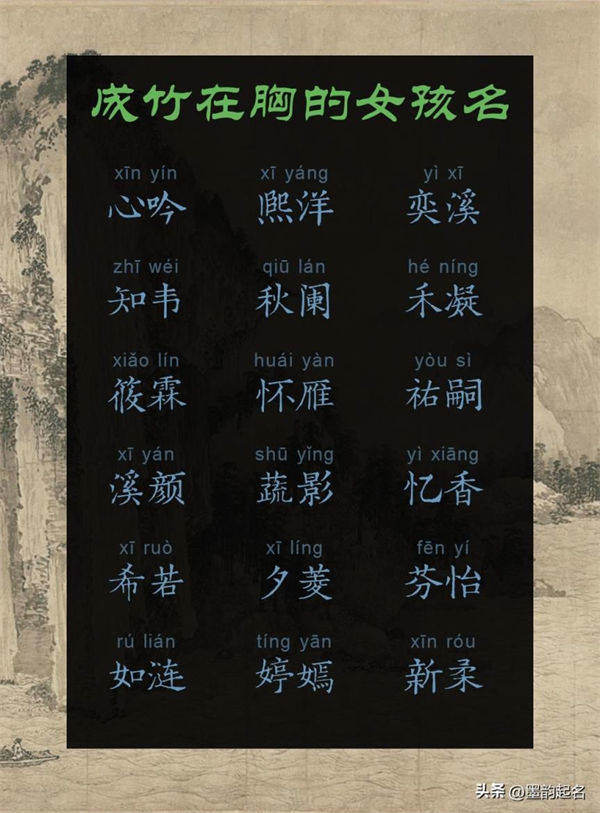 成竹在胸的女孩名
xīn yín xī yáng yì xī
心吟 熙洋 奕溪
zhī wéi qiū lán hé níng
知韦 秋阑 禾凝
xiǎo lín huái yàn yòu sì
筱霖 怀雁 祐嗣
xī yán shū yǐng yì xiāng
溪颜 蔬影 忆香
xī ruò xī líng fēn yí
希若 夕菱 芬怡
rú lián tíng yān xīn róu
如涟 婷嫣 新柔
头条 @墨韵起名